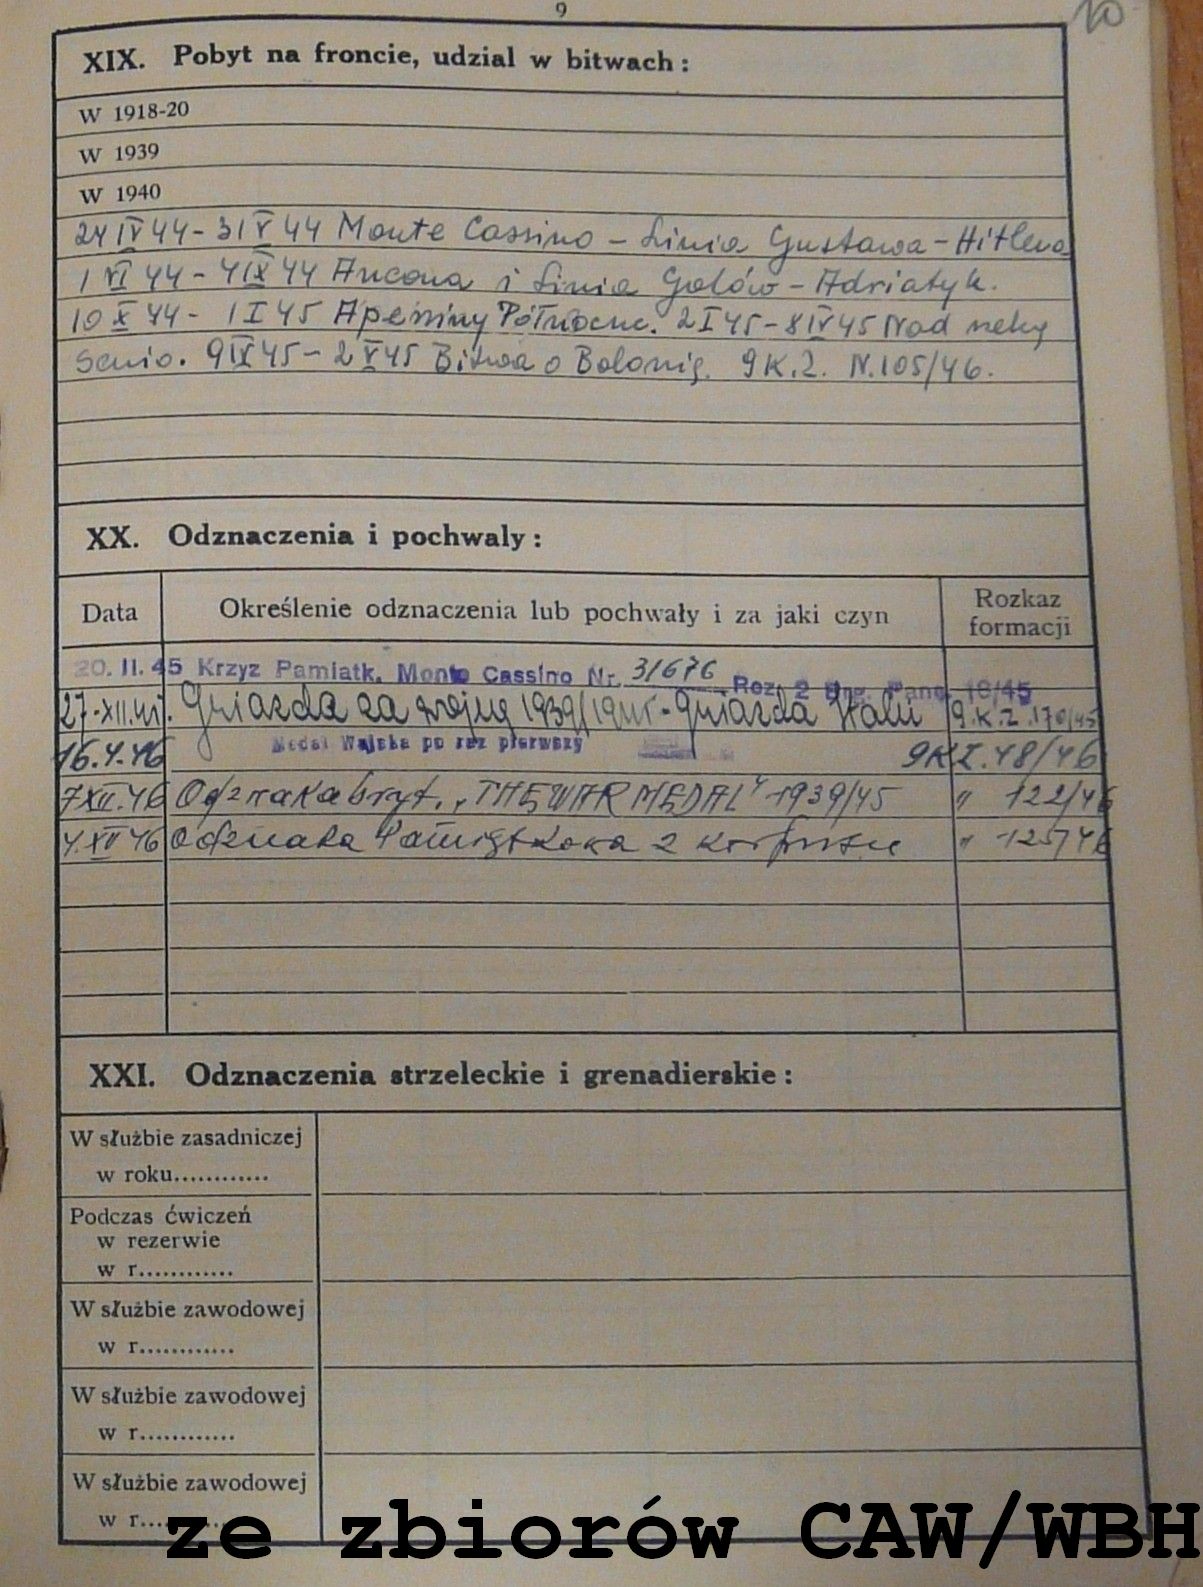 9
10
XIX. Pobyt na froncie, udzial w bitwach :
W 1918-20
W 1939
W 1940
24 IV 44 - 31 V 44 Monte Cassino - Linia Gustawa - Hitlera
1 VI 44 - 4 IX 44 Ancona i Linia Gotów - Adriatyk.
10 X 44 - 1 I 45 Apeniny Północne. 2 I 45 - 8 IV 45 Nad rzeką
Senio. 9 IV 45 - 2 V 45 Bitwa o Bolonię. 9 K.Z. N.105/46.
XX. Odznaczenia i pochwaly :
Data
Określenie odznaczenia lub pochwały i za jaki czyn
Rozkaz formacji
20. II. 45 Krzyz Pamiatk. Monte Cassino Nr. 31676 Roz. 2 Panc. 18/45
27-XII. Gwiazda za wojnę 1939/1945 - Gwiazda Italii 9.K.Z. 170/45
16.4.46 Medal Wojska po raz pierwszy 9KZ.48/46
7 XII.46 Odznaka bryt. „THE WAR MEDAL" 1939/45 " 122/46
4.XII 46 Odznaka Pamiątkowa 2 Korpusu " 125/46
XXI. Odznaczenia strzeleckie i grenadierskie :
W służbie zasadniczej
w roku............
Podczas ćwiczeń
w rezerwie
w r............
W służbie zawodowej
w r............
W służbie zawodowej
w r............
W służbie zawodowej
w r............
ze zbiorów CAW/WBH